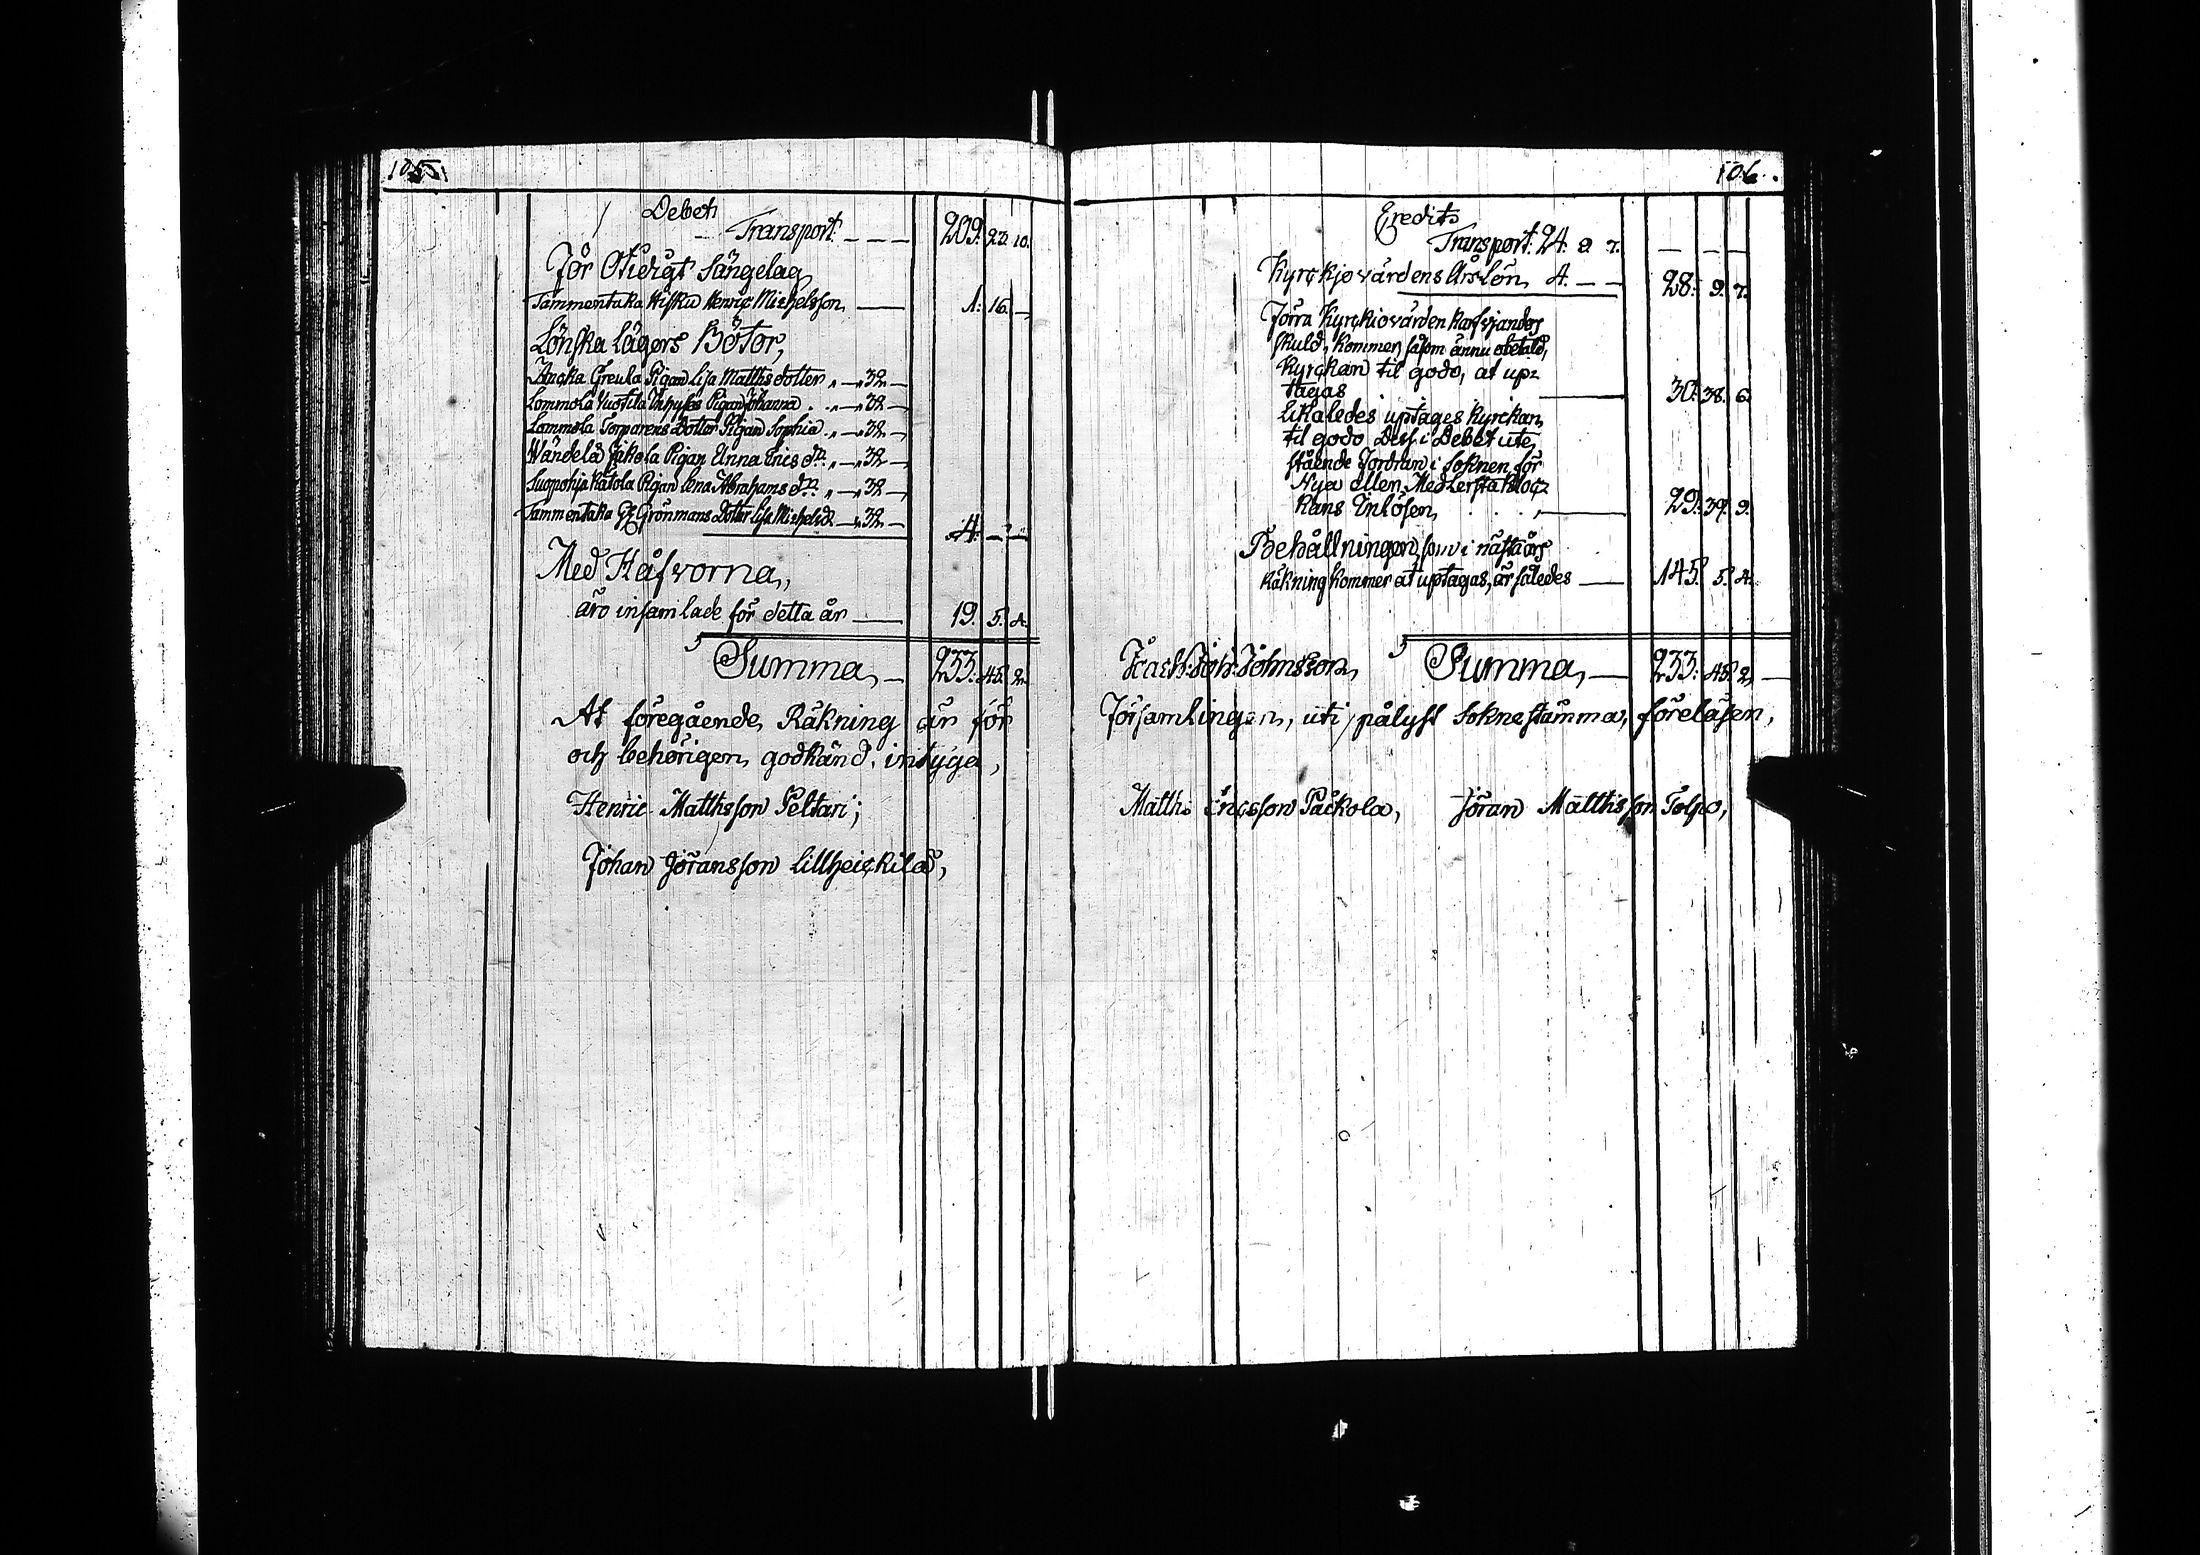 105.
Debet
Transport 209. 23. 10.
För Otidigt Sängelag,
Tammentaka Hisku Henric Michelsson 1. 16. —
Lönska Lägers Böter,
Greula Pigan Lisa Matthsdotter „ — 32 —
Lommola Vuotila Pigan Johanna „ — 32 —
Lommola Torparens Dotter Pigan Sophia „ — 32 —
Wändelä Jakola Pigan Anna Erics dr „ — 32 —
Suopohja Katola Pigan Lena Abrahams dr „ — 32 —
Tammentaka Grönmans Dotter Lisa Michelsd. — 32 —
4. — —
Med Håfvorna,
äro insamlade för detta år 19. 5. 4.
Summa, 233. 45. 2.
At föregående Räkning är för
och behörigen godkänd, intyga,
Henric Matthsson Peltari;
Johan Göransson Lillheickilä,
106.
Credit
Transport. 24. 9. 7. — — —
Kyrckjovärdens Årslön 4. — — 28. 9. 7.
Förra Kyrckiovärden
skuld, kommer såsom ännu obetald,
Kyrckan til godo, at up-
tagas 30. 38. 6.
likaledes uptages Kyrckan
til godo Dess i Debet ute
stående Fordran i Soknen för
Nya eller Medlersta Kloc-
kans Inlösen, 29. 39. 9.
Behållningen som i nästa års
Räkning kommer at uptagas, är således 145. 5. 4.
Johnsson, Summa, 233. 45. 2.
Församlingen, uti pålyst Soknestämma, föreläsen,
Matths Ericsson Päckola, Jöran Matthsson Tolpo,